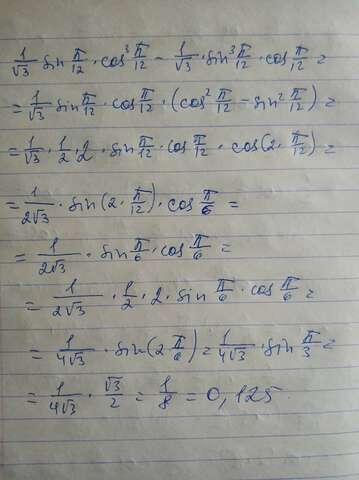 1/√3 sin π/12 · cos³ π/12 - 1/√3 · sin³ π/12 · cos π/12 =
= 1/√3 sin π/12 · cos π/12 · (cos² π/12 - sin² π/12) =
= 1/√3 · 1/2 · 2 · sin π/12 · cos π/12 · cos(2 · π/12) =
= 1/2√3 · sin(2 · π/12) · cos π/6 =
= 1/2√3 · sin π/6 · cos π/6 =
= 1/2√3 · 1/2 · 2 · sin π/6 · cos π/6 =
= 1/4√3 · sin(2 π/6) = 1/4√3 · sin π/3 =
= 1/4√3 · √3/2 = 1/8 = 0,125.